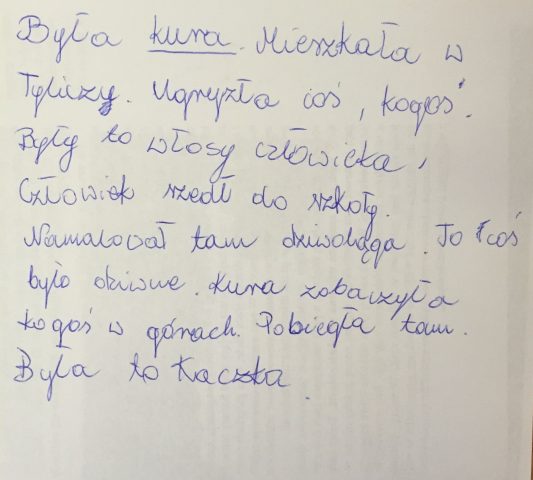 Była kura. Mieszkała w
Tyliczy. Ugryzła coś, kogoś.
Były to włosy człowieka,
Człowiek szedł do szkoły.
Namalował tam dziwoląga. To coś
było dziwne. Kura zobaczyła
kogoś w górach. Pobiegła tam.
Była to kaczka.